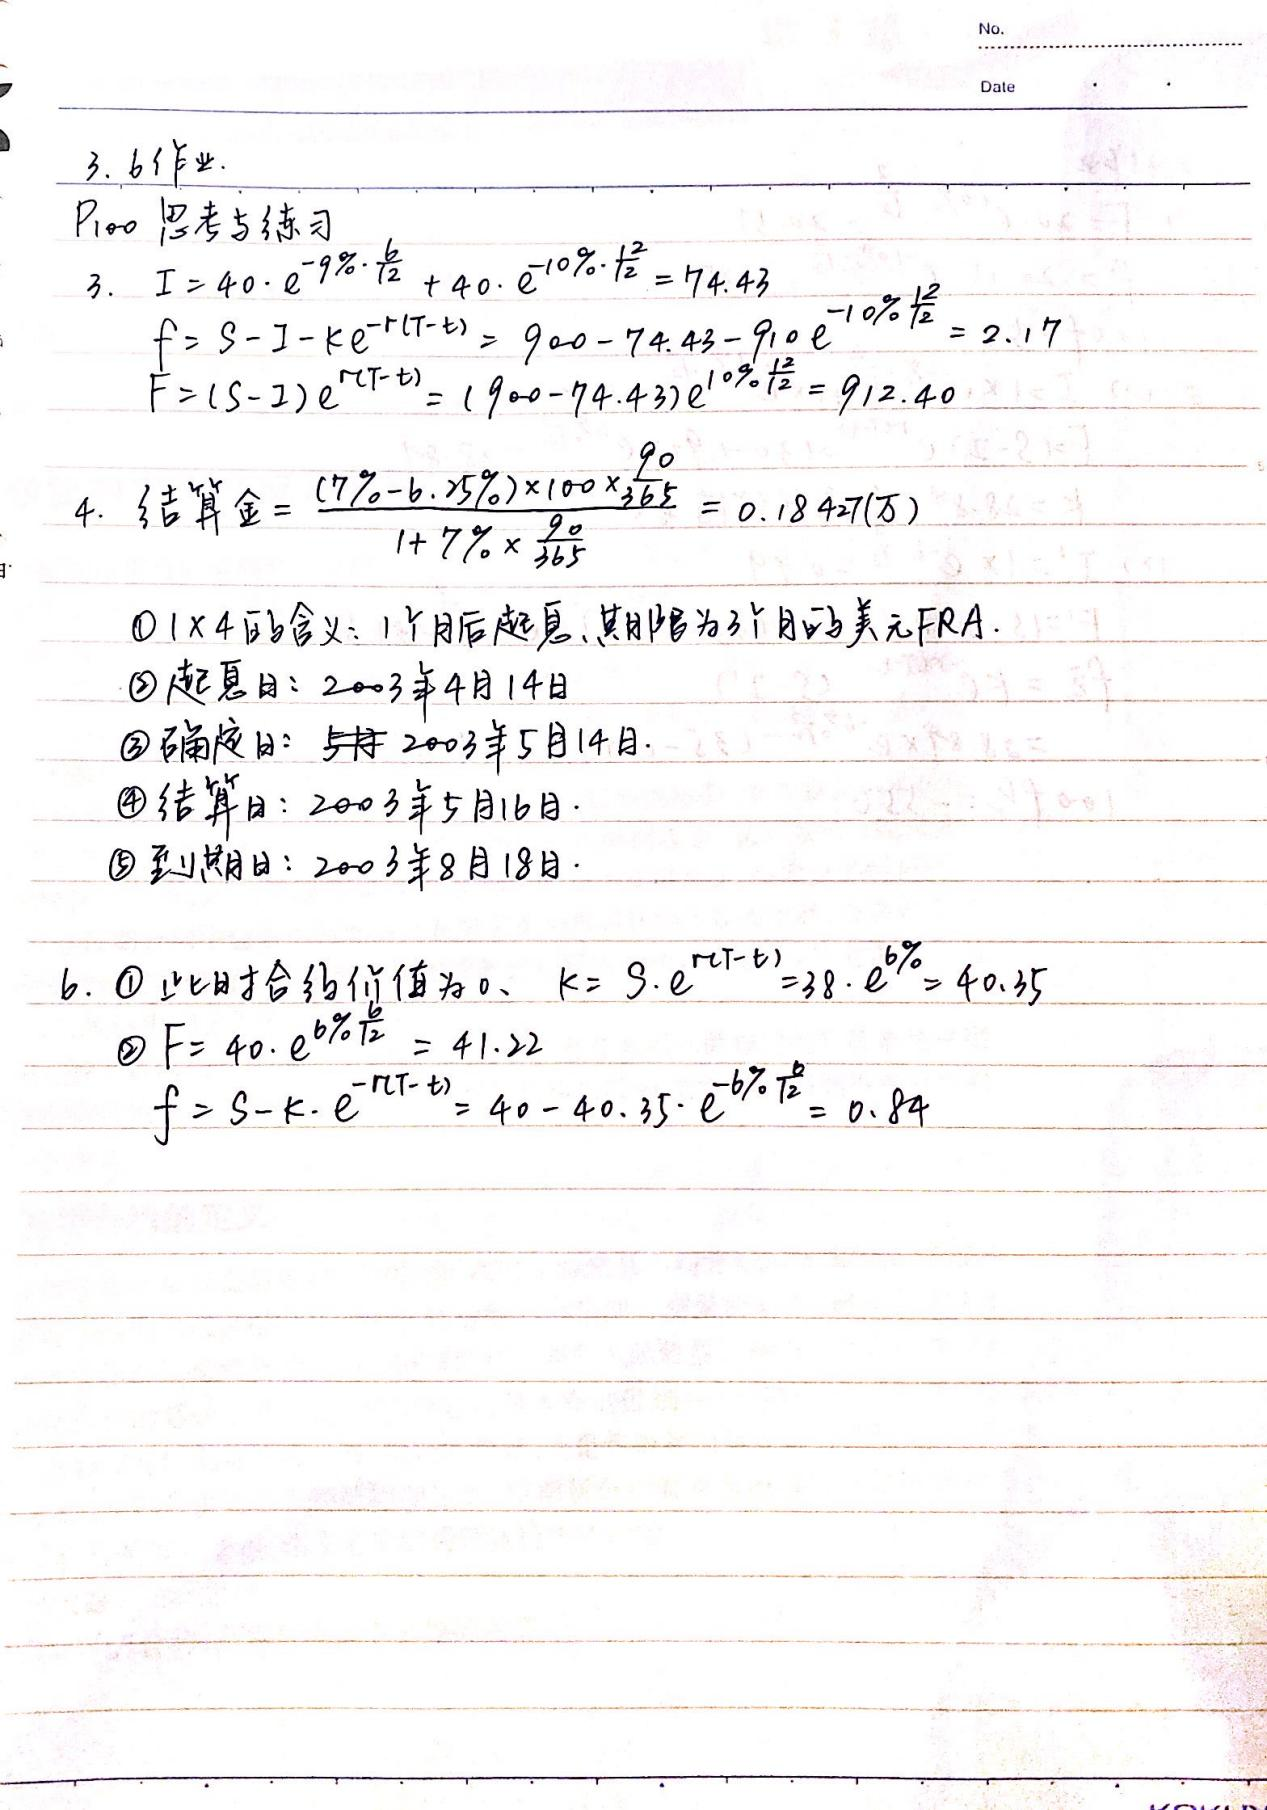 No.
Date
3.6作业.
P100 思考与练习
3. I=40·e^{-9%·6/12}+40·e^{-10%·12/12}=74.43
f=S-I-Ke^{-r(T-t)}=900-74.43-910e^{-10%·12/12}=2.17
F=(S-I)e^{r(T-t)}=(900-74.43)e^{10%·12/12}=912.40
4. 结算金=\frac{(7%-6.25%)×100×\frac{90}{365}}{1+7%×\frac{90}{365}}=0.18427(万)
①1×4的含义:1个月后起息、期限为3个月的美元FRA.
②起息日:2003年4月14日
③确定日:2003年5月14日.
④结算日:2003年5月16日.
⑤到期日:2003年8月18日.
6. ①此时合约价值为0、 K=S·e^{r(T-t)}=38·e^{6%}=40.35
②F=40·e^{6%·6/12}=41.22
f=S-K·e^{-r(T-t)}=40-40.35·e^{-6%·6/12}=0.84